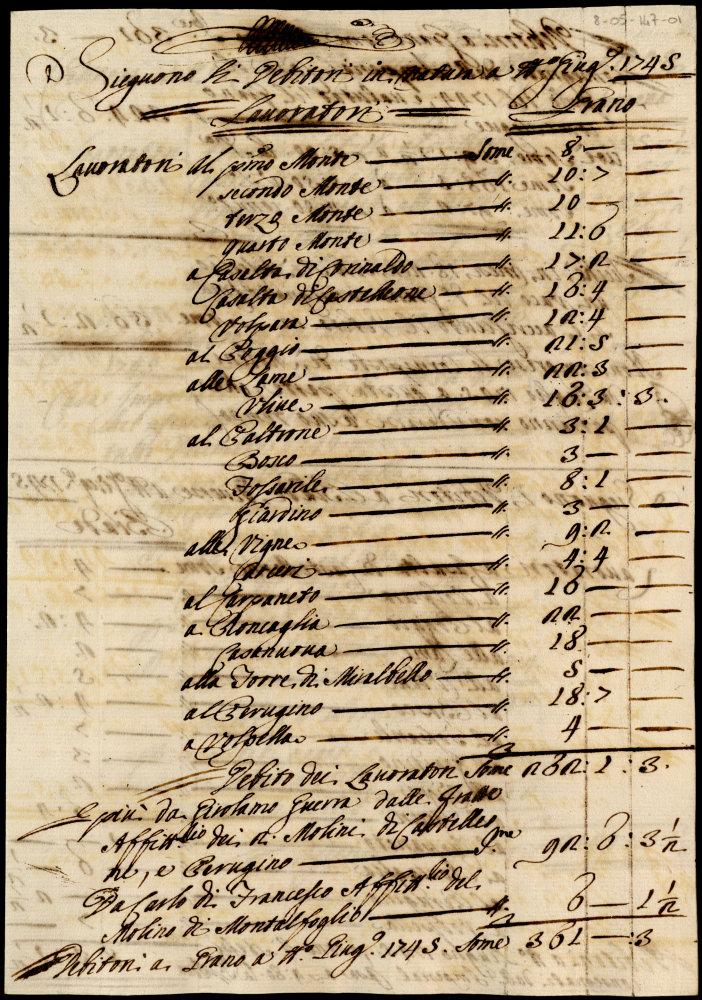 8-05-147-01
Sieguono li Debitori in natura a tt.o Giug.o 1745
Lavoratori Grano
Lavoratori al pmo Monte Some 8 — —
secondo Monte ". 10:7 —
terzo Monte ". 10 — —
quarto Monte ". 11:6 —
a Casalta di Corinaldo ". 17:2 —
Casalta di Castelleone ". 16:4 —
Volpara ". 12:4 —
al Poggio ". 21:5 —
alle Lame ". 22:3 —
Ulive ". 16:3:3.
al Paltrone ". 3:1 —
Bosco ". 3 — —
Fossarile ". 8:1 —
Giardino ". 3 — —
alle Vigne ". 9:2 —
Carceri ". 4:4 —
al Carpaneto ". 16 — —
a Roncaglia ". 22 — —
Casanuova ". 18 — —
alla Torre di Miralbello ". 5 — —
al Perugino ". 18:7 —
a Volpella ". 4 — —
Debito dei Lavoratori Some 262:1:3.
E più da Girolamo Guerra dalle Fratte
Affitt.lio dei 2 Molini di Castelleo
ne, e Perugino Sme 92:6:3 1/2
Da Carlo di Francesco Affitt.lio del
Molino di Montalfoglio ". 6 — 1 1/2
Debitori a Grano a tt.o Giug.o 1745. Some 361 — :3